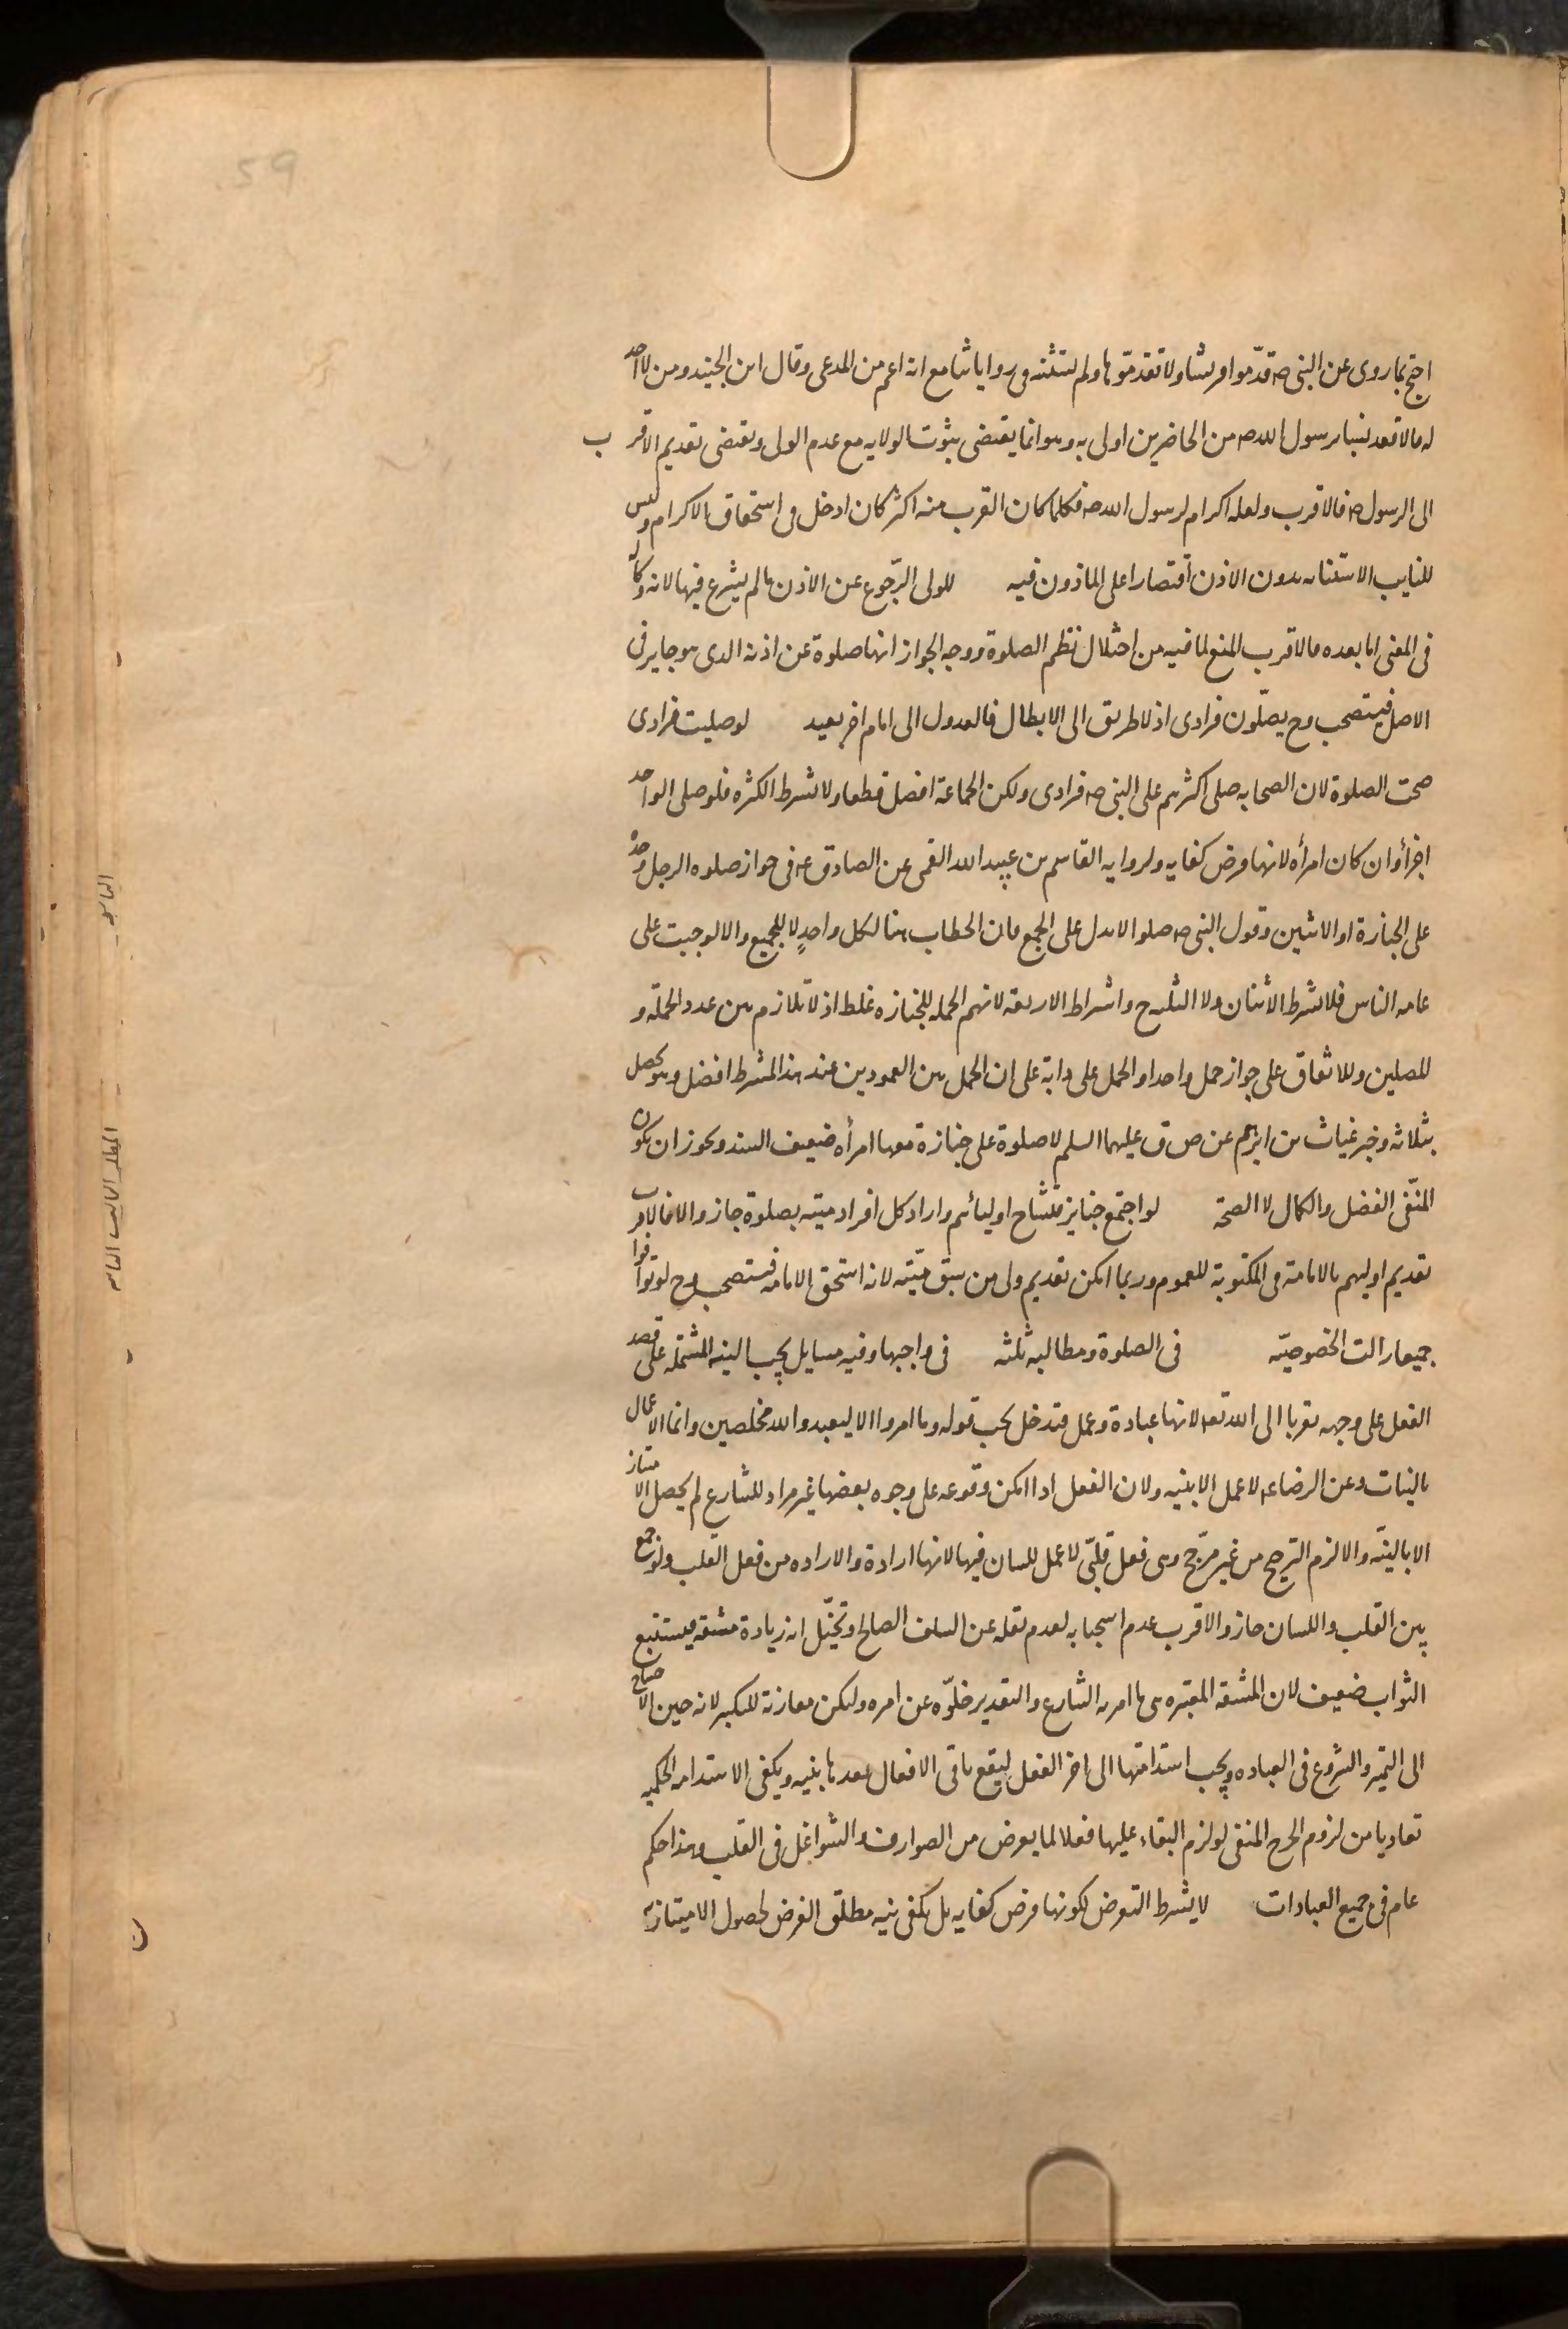 59
احتج بما روى عن النبى صه قدّموا قريشا ولا تقدمّوها ولم نستثبته فى رواياتنا مع انه اعم من المدعى وقال ابن الجنيد ومن لا احد
له فالاقعد نسبا برسول الله صه من الحاضرين اولى به وهو انما يقتضى بثبوت الولايه مع عدم الولى ويقتضى تقديم الاقرب
الى الرسول صه فالاقرب ولعله اكرام لرسول الله صه فكلما كان القرب منه اكثر كان ادخل فى استحقاق الاكرام وليس
للنايب الاستنابه بدون الاذن اقتصارا على الماذون فيه للولى الرّجوع عن الاذن ما لم يشرع فيها لانه وكاله
فى المعنى اما بعده فالاقرب المنع لما فيه من اختلال نظم الصلوة ووجه الجواز انها صلوة عن اذنه الذى هو جايز فى
الاصل فيستصحب وح يصلّون فرادى اذ لا طريق الى الابطال فالعدول الى امام اخر بعيد لو صليت فرادى
صحت الصلوة لان الصحابه صلى اكثرهم على النبى صه فرادى ولكن الجماعة افضل قطعا ولا تشرط الكثره فلو صلى الواحد
اجزأ وان كان امرأه لانها فرض كفايه ولروايه القاسم بن عبيد الله القمى عن الصادق عه فى جواز صلوه الرجل وحده
على الجنازة او الاثنين وقول النبى صه صلوا لا يدل على الجمع فان الخطاب هنا لكل واحدٍ لا للجميع والا لوجبت على
عامه الناس فلا يشرط الاثنان ولا الثلثه واشراط الاربعه لانهم الحمله للجنازه غلط اذ لا تلازم بين عدد الحملة و
المصلين وللاتفاق على جواز حمل واحد او الحمل على دابة على ان الحمل بين العمودين عند هذا المشرط افضل وهو يحصل
بثلاثه وخبر غياث بن ابرهيم عن ص ق عليهما السلم لا صلوة على جنازة معها امرأه ضعيف السند ويجوز ان يكون
المنّفى الفضل والكمال لا الصحة لو اجتمع جنايز فتشاح اوليائهم واراد كل افراد ميته بصلوة جاز والا فالاقرب
تقديم اوليهم بالامامة فى المكتوبة للعموم وربما امكن تقديم ولى من سبق ميّته لانه استحق الامامه فيستصحب وح لو توافوا
جميعا زالت الخصوصيّه فى الصلوة ومطالبه ثلثه فى واجبها وفيه مسايل يجب النيه المشتمله على قصد
الفعل على وجهه تقربا الى الله تعه لانها عبادة وعمل فتدخل تحت قوله وما امروا الا ليعبدوا الله مخلصين وانما الاعمال
بالنيات وعن الرضا عه لا عمل الا بنيه ولان الفعل اذا امكن وقوعه على وجوه بعضها غير مراد للشارع لم يحصل الامتياز
الا بالنيّه والا لزم الترجيح من غير مرّجح وهى فعل قلبّى لا عمل للسان فيها لانها ارادة والاراده من فعل القلب ولو جمع
بين القلب واللسان جاز والاقرب عدم استحبابه لعدم نقله عن السلف الصالح وتخيّل انه زيادة مشقه فيستتبع
الثواب ضعيف لان المشقه المعتبره هى ما امر به الشارع والتقدير خلوّه عن امره ولتكن مقارنة للتكبير لانه حين الاحتياج
الى التميز والشروع فى العباده ويجب استدامتها الى اخر الفعل ليقع باقى الافعال بعدها بنيه ويكفى الاستدامه الحكميه
تفاديا من لزوم الحرج المنفى لو لزم البقاء عليها فعلا لما يعرض من الصوارف والشواغل فى القلب وهذا حكم
عام فى جميع العبادات لا يشرط التعرض لكونها فرض كفايه بل يكفى نيه مطلق الفرض لحصول الامتياز به